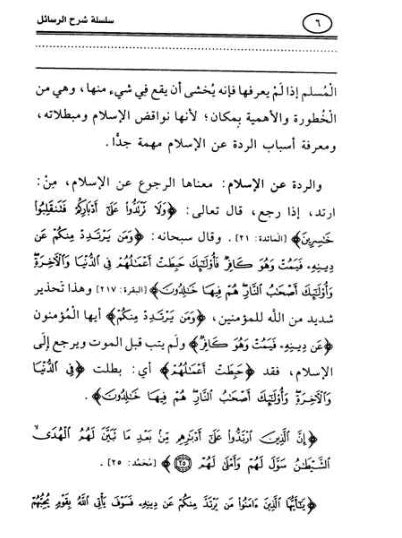 ٦
سلسلة شرح الرسائل
المُسلم إذا لَمْ يعرفها فإنه يُخشى أن يقع فِي شيء منها، وهي من
الخُطورة والأهمية بِمكان؛ لأنها نواقض الإسلام ومبطلاته،
ومعرفة أسباب الردة عن الإسلام مهمة جدًّا.
والردة عن الإسلام: معناها الرجوع عن الإسلام، مِنْ:
ارتد، إذا رجع، قال تعالى: ﴿وَلَا تَرْتَدُّوا عَلَىٰ أَدْبَارِكُمْ فَتَنقَلِبُوا
خَاسِرِينَ﴾ [المائدة: ٢١]. وقال سبحانه: ﴿وَمَن يَرْتَدِدْ مِنكُمْ عَن
دِينِهِ فَيَمُتْ وَهُوَ كَافِرٌ فَأُولَٰئِكَ حَبِطَتْ أَعْمَالُهُمْ فِي الدُّنْيَا وَالْآخِرَةِ
وَأُولَٰئِكَ أَصْحَابُ النَّارِ هُمْ فِيهَا خَالِدُونَ﴾ [البقرة: ٢١٧] وهذا تَحذير
شديد من الله للمؤمنين، ﴿وَمَن يَرْتَدِدْ مِنكُمْ﴾ أيها المُؤمنون
﴿عَن دِينِهِ فَيَمُتْ وَهُوَ كَافِرٌ﴾ ولَم يتب قبل الموت ويرجع إلَى
الإسلام، فقد ﴿حَبِطَتْ أَعْمَالُهُمْ﴾ أي: بطلت ﴿فِي الدُّنْيَا
وَالْآخِرَةِ وَأُولَٰئِكَ أَصْحَابُ النَّارِ هُمْ فِيهَا خَالِدُونَ﴾.
﴿إِنَّ الَّذِينَ ارْتَدُّوا عَلَىٰ أَدْبَارِهِم مِّن بَعْدِ مَا تَبَيَّنَ لَهُمُ الْهُدَى ۙ
الشَّيْطَانُ سَوَّلَ لَهُمْ وَأَمْلَىٰ لَهُمْ ﴿٢٥﴾﴾ [مُحَمَّد: ٢٥].
﴿يَا أَيُّهَا الَّذِينَ آمَنُوا مَن يَرْتَدَّ مِنكُمْ عَن دِينِهِ فَسَوْفَ يَأْتِي اللَّهُ بِقَوْمٍ يُحِبُّهُمْ